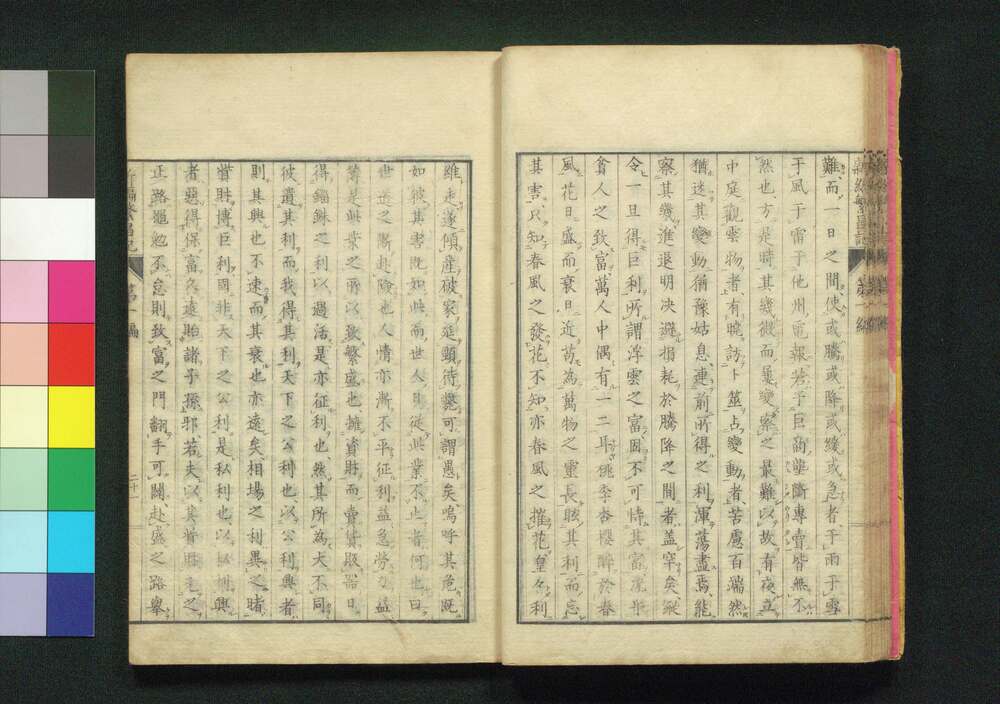 難而一日之間使或騰或降或緩或急者于雨于雪
于風于雷于他州電報若于巨商壟斷專賣皆無不
然也方是時其幾微而屢變察之最難以故有夜立
中庭觀雲物者有曉訪卜筮占變動者苦慮百端然
猶迷其變動猶豫姑息連前所得之利渾蕩盡焉能
察其幾進退明决避損耗於騰降之間者蓋罕矣縱
令一旦得巨利所謂浮雲之富固不可恃其富
貪人之致富萬人中偶有一二耳桃李杏櫻醉於春
風花日盛而衰日近苟為萬物之靈長眩其利而忘
其害只知春風之發花不知亦春風之摧花皇々利
雖走遂傾産破家延頸待斃可謂愚矣嗚呼其危既
如彼其害既如此而世人日從此業不止者何也曰
世途之嶮赴險也人情亦漸不平征利益急勞力益
業之所以致繁盛也擁資財而賣貨販器日
得錙銖之利以過活是亦征利也然其所為大不同
彼遺其利而我得其利天下之公利也以公利興者
則其興也不速而其衰也亦遠矣相場之利異之賭
貲財博巨利固非天下之公利是私利也以私利興
者惡得保富久遠貽諸子孫邪若夫以其
正路黽勉不怠則致富之門翻手可闢赴盛之路擧
新編繁昌記
第一編
二十